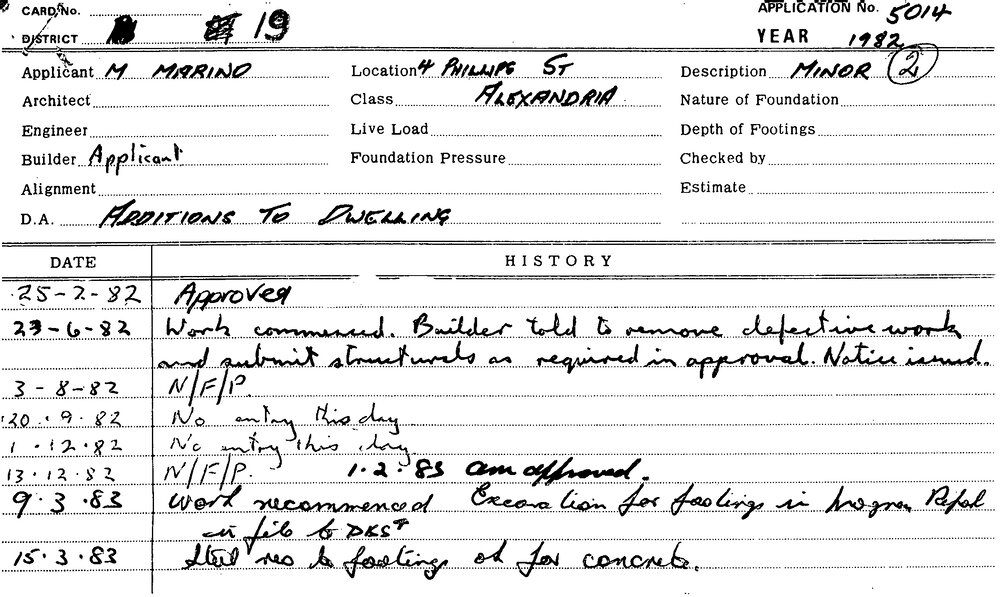 CARD No.
APPLICATION No. 5014
DISTRICT 19
YEAR 1982
Applicant M MARINO Location 4 PHILLIPS ST Description MINOR 2
Architect Class ALEXANDRIA Nature of Foundation
Engineer Live Load Depth of Footings
Builder Applicant Foundation Pressure Checked by
Alignment Estimate
D.A. ADDITIONS TO DWELLING
DATE HISTORY
25-2-82 Approved
23-6-82 Work commenced. Builder told to remove defective work
and submit structurals as required in approval. Notice issued.
3-8-82 N/F/P.
20.9.82 No entry this day
1.12.82 No entry this day
13.12.82 N/F/P. 1.2.83 am approved.
9.3.83 Work recommenced Excavation for footings in
file to
15.3.83 Steel reo to footings ok for concrete.